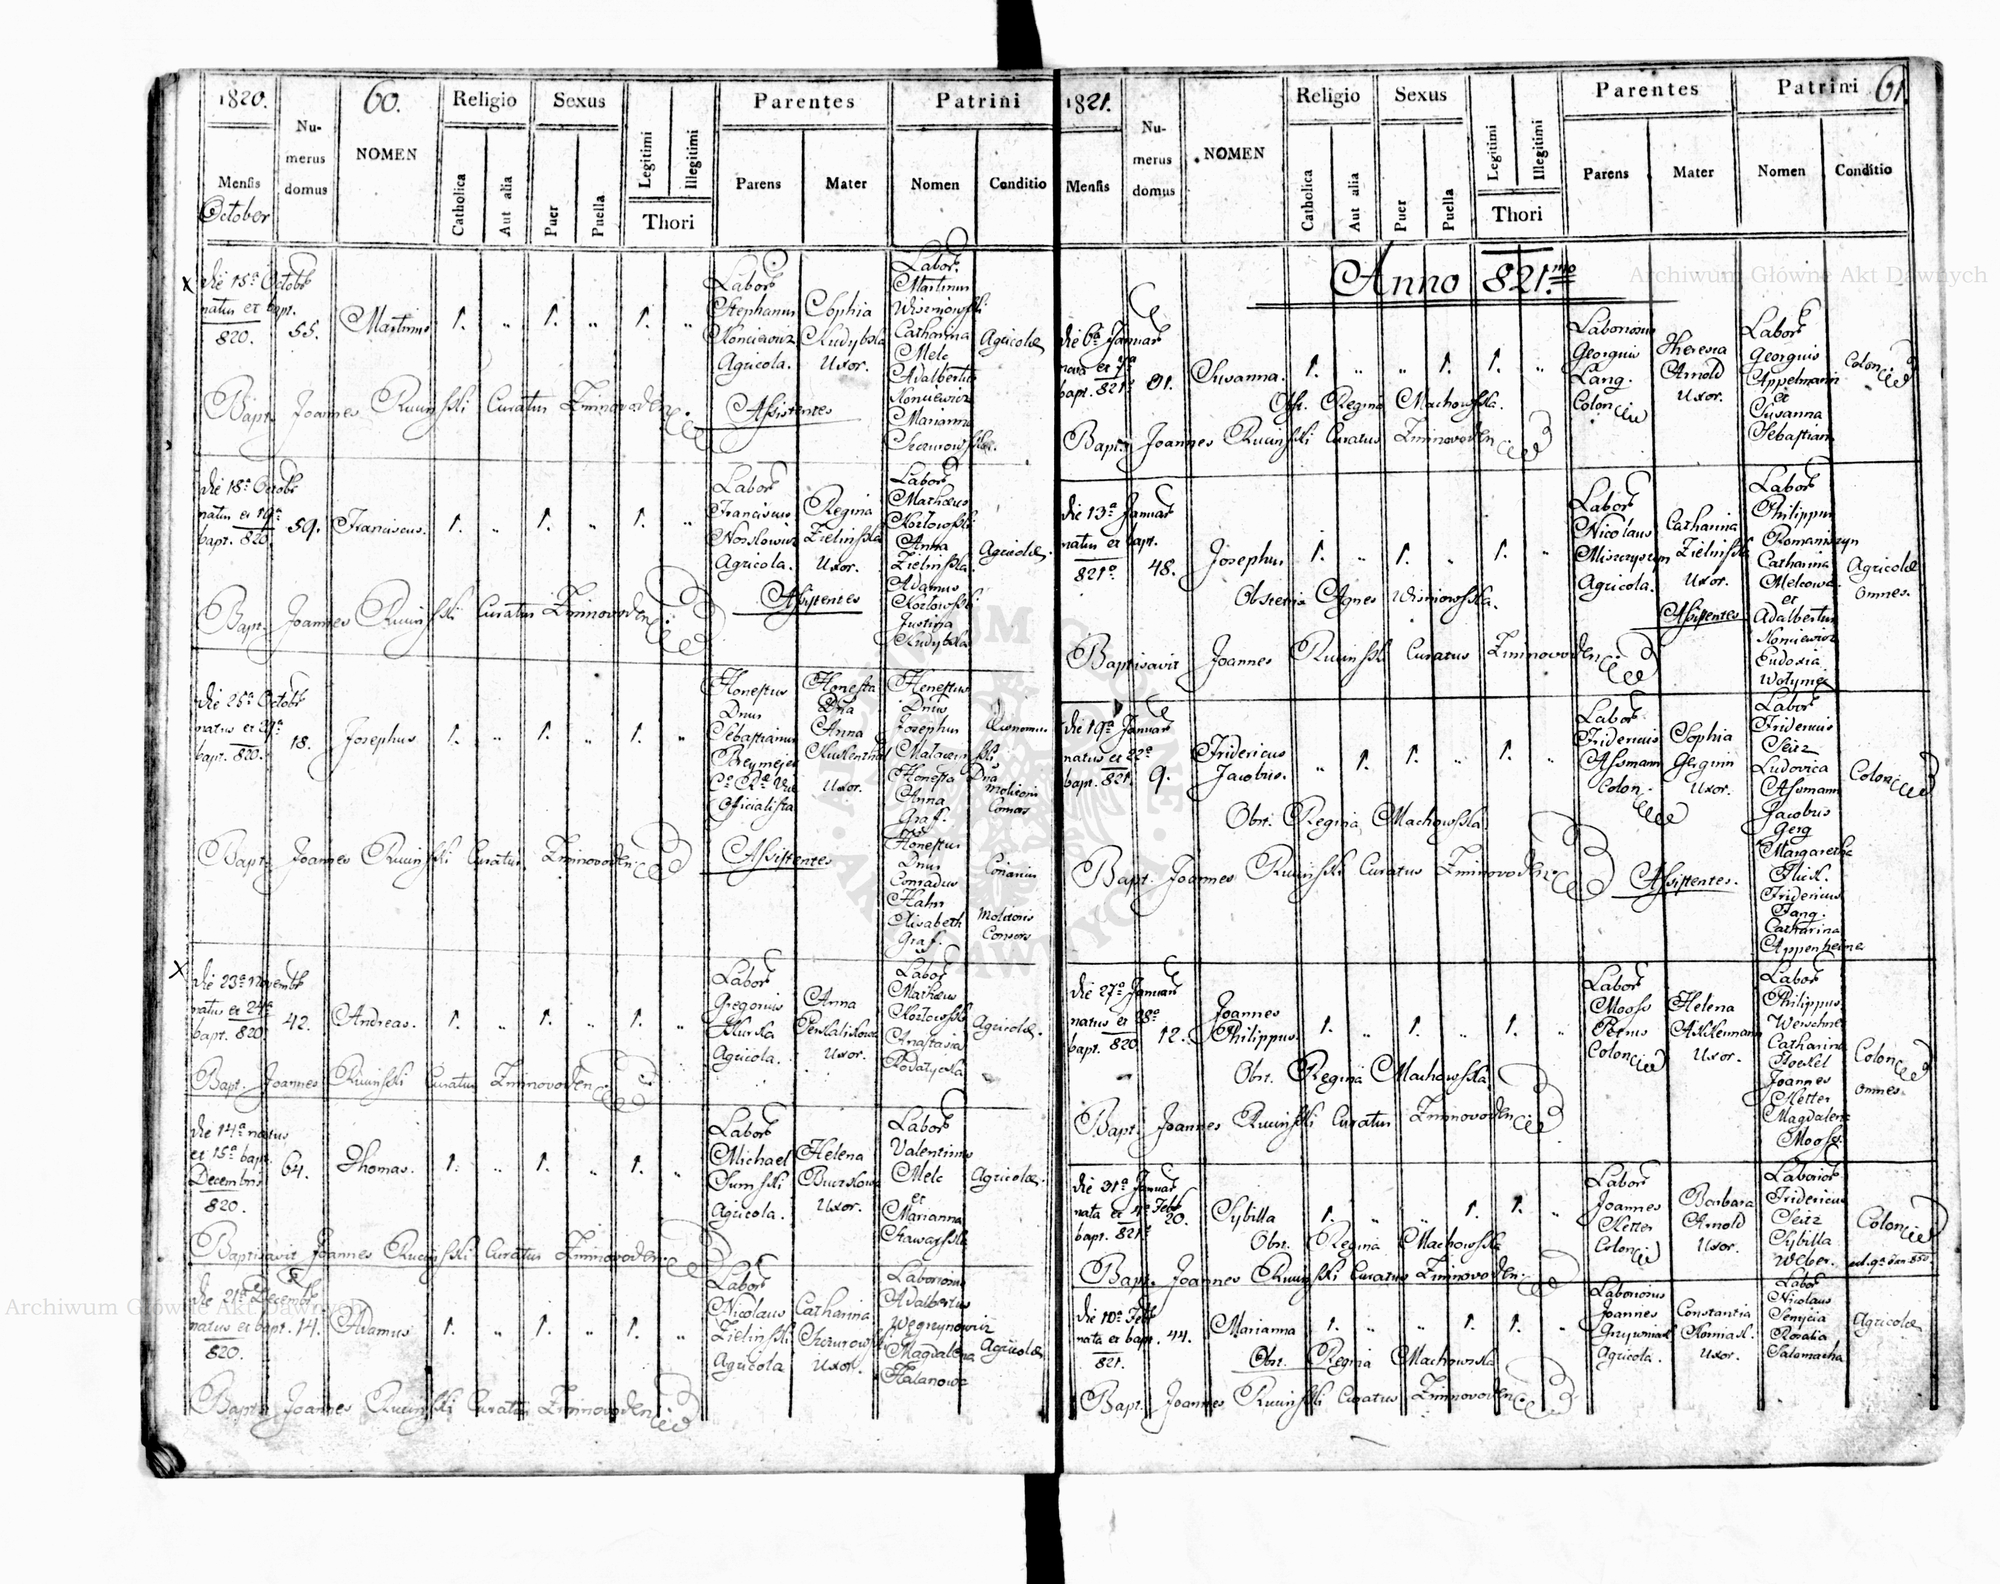 1820.
60.
Numerus domus
NOMEN
Religio
Catholica
Aut alia
Sexus
Puer
Puella
Legitimi
Illegitimi
Thori
Parentes
Parens
Mater
Patrini
Nomen
Conditio
Mensis
October
die 15ª Octobr
natus et bapt.
820.
55.
Martinus
1.
1.
1.
Labor
Stephanus
Agricola.
Sophia
Uxor.
Labor.
Martinus
Wiszniowski
Catharina
Melc
Adalbertus
Marianna
Agricolæ
Bapt. Joannes Ruciński Curatus Zimnovoden.
Assistentes
die 18ª Octobr
natus et 19ª
bapt. 820.
59.
Franciscus.
1.
1.
1.
Labor
Franciscus
Agricola.
Regina
Zielińska
Uxor.
Labor
Mathæus
Kozłowski
Anna
Zielińska.
Adamus
Kozłowski
Justina
Agricolæ.
Bapt. Joannes Ruciński Curatus Zimnovoden.
Assistentes
die 25ª Octobr
natus et 29ª
bapt. 820.
18.
Josephus
1.
1.
1.
Honestus
Dnus
Sebastianus
Oficialista
Honesta
Dna
Anna
Uxor.
Honestus
Dnus
Josephus
Honesta Dna
Anna
Graf.
Honestus
Dnus
Conradus
Hahn
Elisabeth
Graf.
Molitoris
Consors
Bapt. Joannes Ruciński Curatus Zimnovoden.
Assistentes
die 23ª Novembr
natus et 24ª
bapt. 820.
42.
Andreas.
1.
1.
1.
Labor
Gregorius
Agricola.
Anna
Uxor.
Labor
Mathæus
Kozłowski
Anastasia
Agricolæ.
Bapt. Joannes Ruciński Curatus Zimnovoden.
die 14ª natus
et 15ª bapt.
Decembris
820.
64.
Thomas.
1.
1.
1.
Labor
Michael
Agricola.
Helena
Uxor.
Labor
Valentinus
Melc
et
Marianna
Agricolæ.
Baptisavit Joannes Ruciński Curatus Zimnovoden.
die 21ª Decembr
natus et bapt.
820.
14.
Adamus
1.
1.
1.
Labor
Nicolaus
Zieliński
Agricola
Catharina
Uxor.
Laboriosus
Adalbertus
Magdalena
Agricolæ
Bapt. Joannes Ruciński Curatus Zimnovoden.
1821.
61.
Mensis
Numerus domus
NOMEN
Religio
Catholica
Aut alia
Sexus
Puer
Puella
Legitimi
Illegitimi
Thori
Parentes
Parens
Mater
Patrini
Nomen
Conditio
Anno 821.mo
die 6ª Januar
nata et 7ª
bapt. 821º
Susanna.
1.
1.
1.
Laboriosus
Georgius
Lang.
Colon
Theresia
Arnold
Uxor.
Labor
Georgius
Appelmann
et
Susanna
Sebastian
Colon
Obst. Regina Machowska.
Bapt. Joannes Ruciński Curatus Zimnovoden.
die 13ª Januar
natus et bapt.
821º
48.
Josephus
1.
1.
1.
Labor
Nicolaus
Agricola.
Catharina
Zielińska
Uxor.
Labor
Philippus
Romaniszyn
Catharina
Melcowa.
et
Adalbertus
Eudoxia
Agricolæ
omnes.
Obstetrix Agnes Wiszniowska.
Assistentes
Baptisavit Joannes Ruciński Curatus Zimnovoden.
die 19ª Januar
natus et 22ª
bapt. 821.
9.
Fridericus
Jacobus.
1.
1.
1.
Labor
Fridericus
Assmann
Colon
Sophia
Uxor.
Labor
Fridericus
Seitz
Ludovica
Assmann
Jacobus
Gerg
Margaretha
Fridericus
Catharina
Colon
Obst. Regina Machowska
Bapt. Joannes Ruciński Curatus Zimnovoden.
Assistentes.
die 27ª Januar
natus et 28ª
bapt. 820
12.
Joannes
Philippus.
1.
1.
1.
Labor
Mooss
Petrus
Colon
Helena
Akkermann
Uxor.
Labor
Philippus
Catharina
Joannes
Ketter
Magdalena
Mooss.
Colon
omnes.
Obst. Regina Machowska
Bapt. Joannes Ruciński Curatus Zimnovoden.
die 31ª Januar
nata et 1ª Febr
bapt. 821º
20.
Sybilla
1.
1.
1.
Labor
Joannes
Ketter
Colon
Barbara
Arnold
Uxor.
Laborios
Fridericus
Seitz
Sybilla
Weber.
Colon
Obst. Regina Machowska
Bapt. Joannes Ruciński Curatus Zimnovoden.
die 10ª Febr
nata et bapt.
821.
44.
Marianna
1.
1.
1.
Laboriosus
Joannes
Agricola.
Constantia
Uxor.
Labor
Nicolaus
Senycia
Rosalia
Salamacha
Agricolæ
Obst. Regina Machowska
Bapt. Joannes Ruciński Curatus Zimnovoden.
Archiwum Główne Akt Dawnych
Archiwum Główne Akt Dawnych
ARCHIWUM GŁÓWNE AKT DAWNYCH